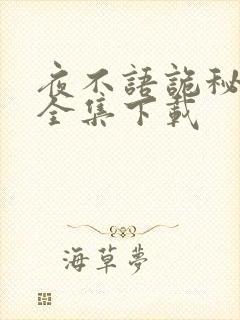 夜不語詭秘
全集下載
海草夢